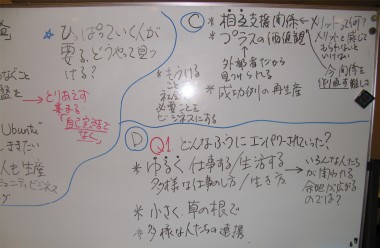 ☆ ひっぱっていく人が
要る。どうやって見つ
ける?
なこと
→ とりあえず
集まる
「自己完結で
なく」
"Ubuntu"
きたい
人も生産
ュニティビジネス
Ⓒ
* 相互支援関係 ← メリットって何?
メリットと感じて
もらわないと
いけない
* プラスの価値観
↑
外部者だから
見つけられる
今関係を
* 成功例の再生産
* もうける
こと
必要ことを
ビジネスにする
Ⓓ Q1. どんなふうにエンパワーされていった?
* ゆるく 仕事する/生活する
多様な仕事のし方/生き方
→ いろんな人たち
が関われる
余地が広がる
のでは?
* 小さく、草の根で
* 多様な人たちの連携